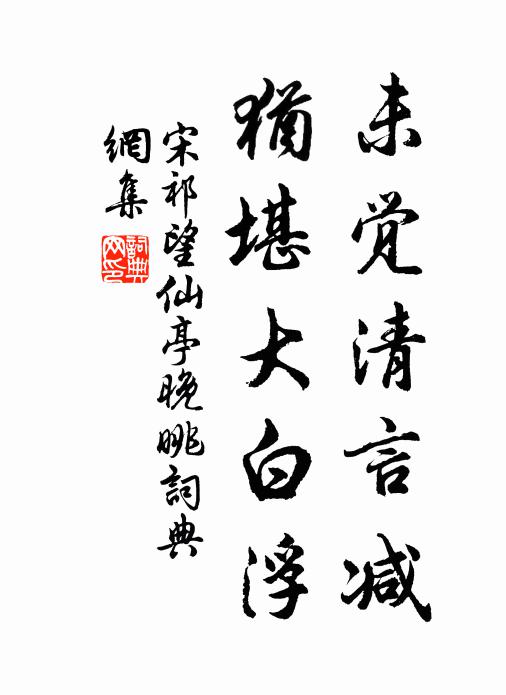 未觉清言减
猶堪大白浮
宋祁望仙亭晚眺詞典
網集
詞典网印